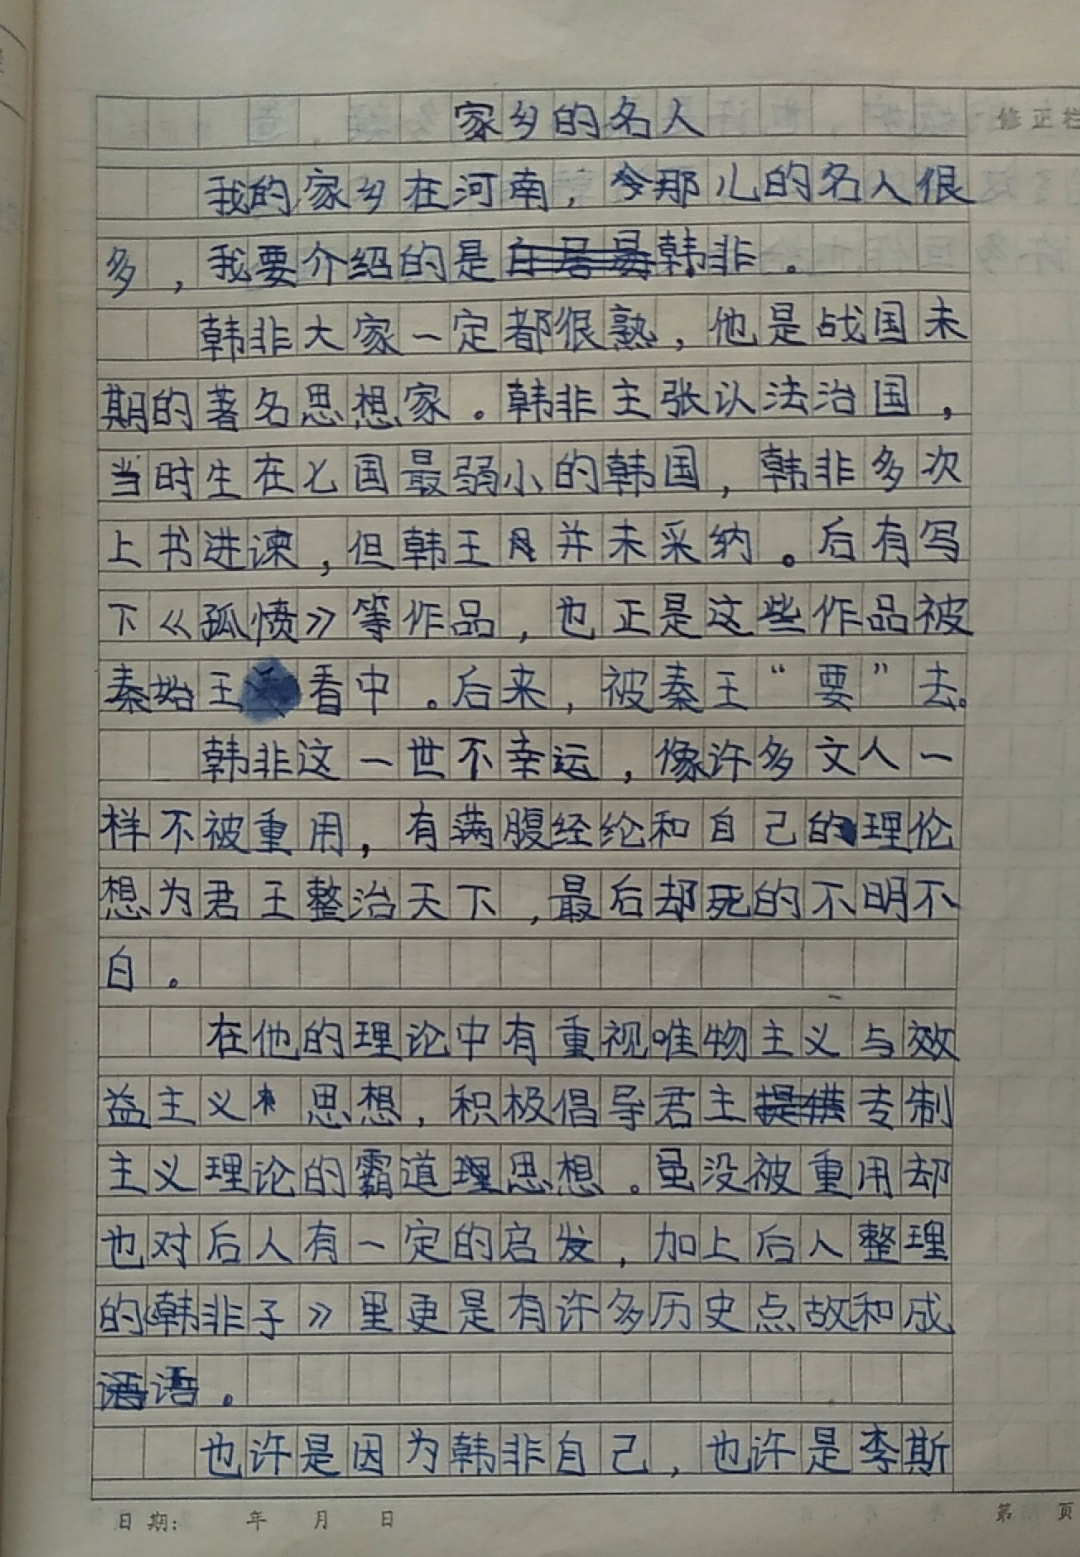 家乡的名人
修正栏
我的家乡在河南，今那儿的名人很
多，我要介绍的是白居易韩非。
韩非大家一定都很熟，他是战国末
期的著名思想家。韩非主张认法治国，
当时生在七国最弱小的韩国，韩非多次
上书进谏，但韩王并未采纳。后有写
下《孤愤》等作品，也正是这些作品被
秦始王看中。后来，被秦王“要”去。
韩非这一世不幸运，像许多文人一
样不被重用，有满腹经纶和自己的理伦
想为君王整治天下，最后却死的不明不
白。
在他的理论中有重视唯物主义与效
益主义思想，积极倡导君主提供专制
主义理论的霸道理思想。虽没被重用却
也对后人有一定的启发，加上后人整理
的《韩非子》里更是有许多历史点故和成
语语。
也许是因为韩非自己，也许是李斯
日期： 年 月 日
第 页